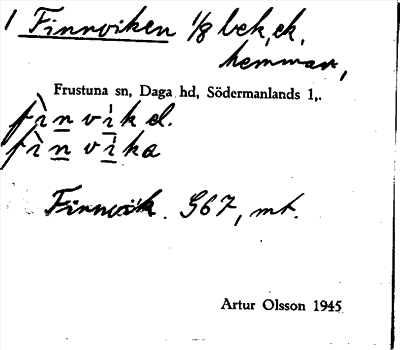 1 Finnviken 1/8 bek. ek.
hemman,
Frustuna sn, Daga hd, Södermanlands l,.
fìnvíkɘ.
fìnvíka
Finnvik. G67, mt.
Artur Olsson 1945